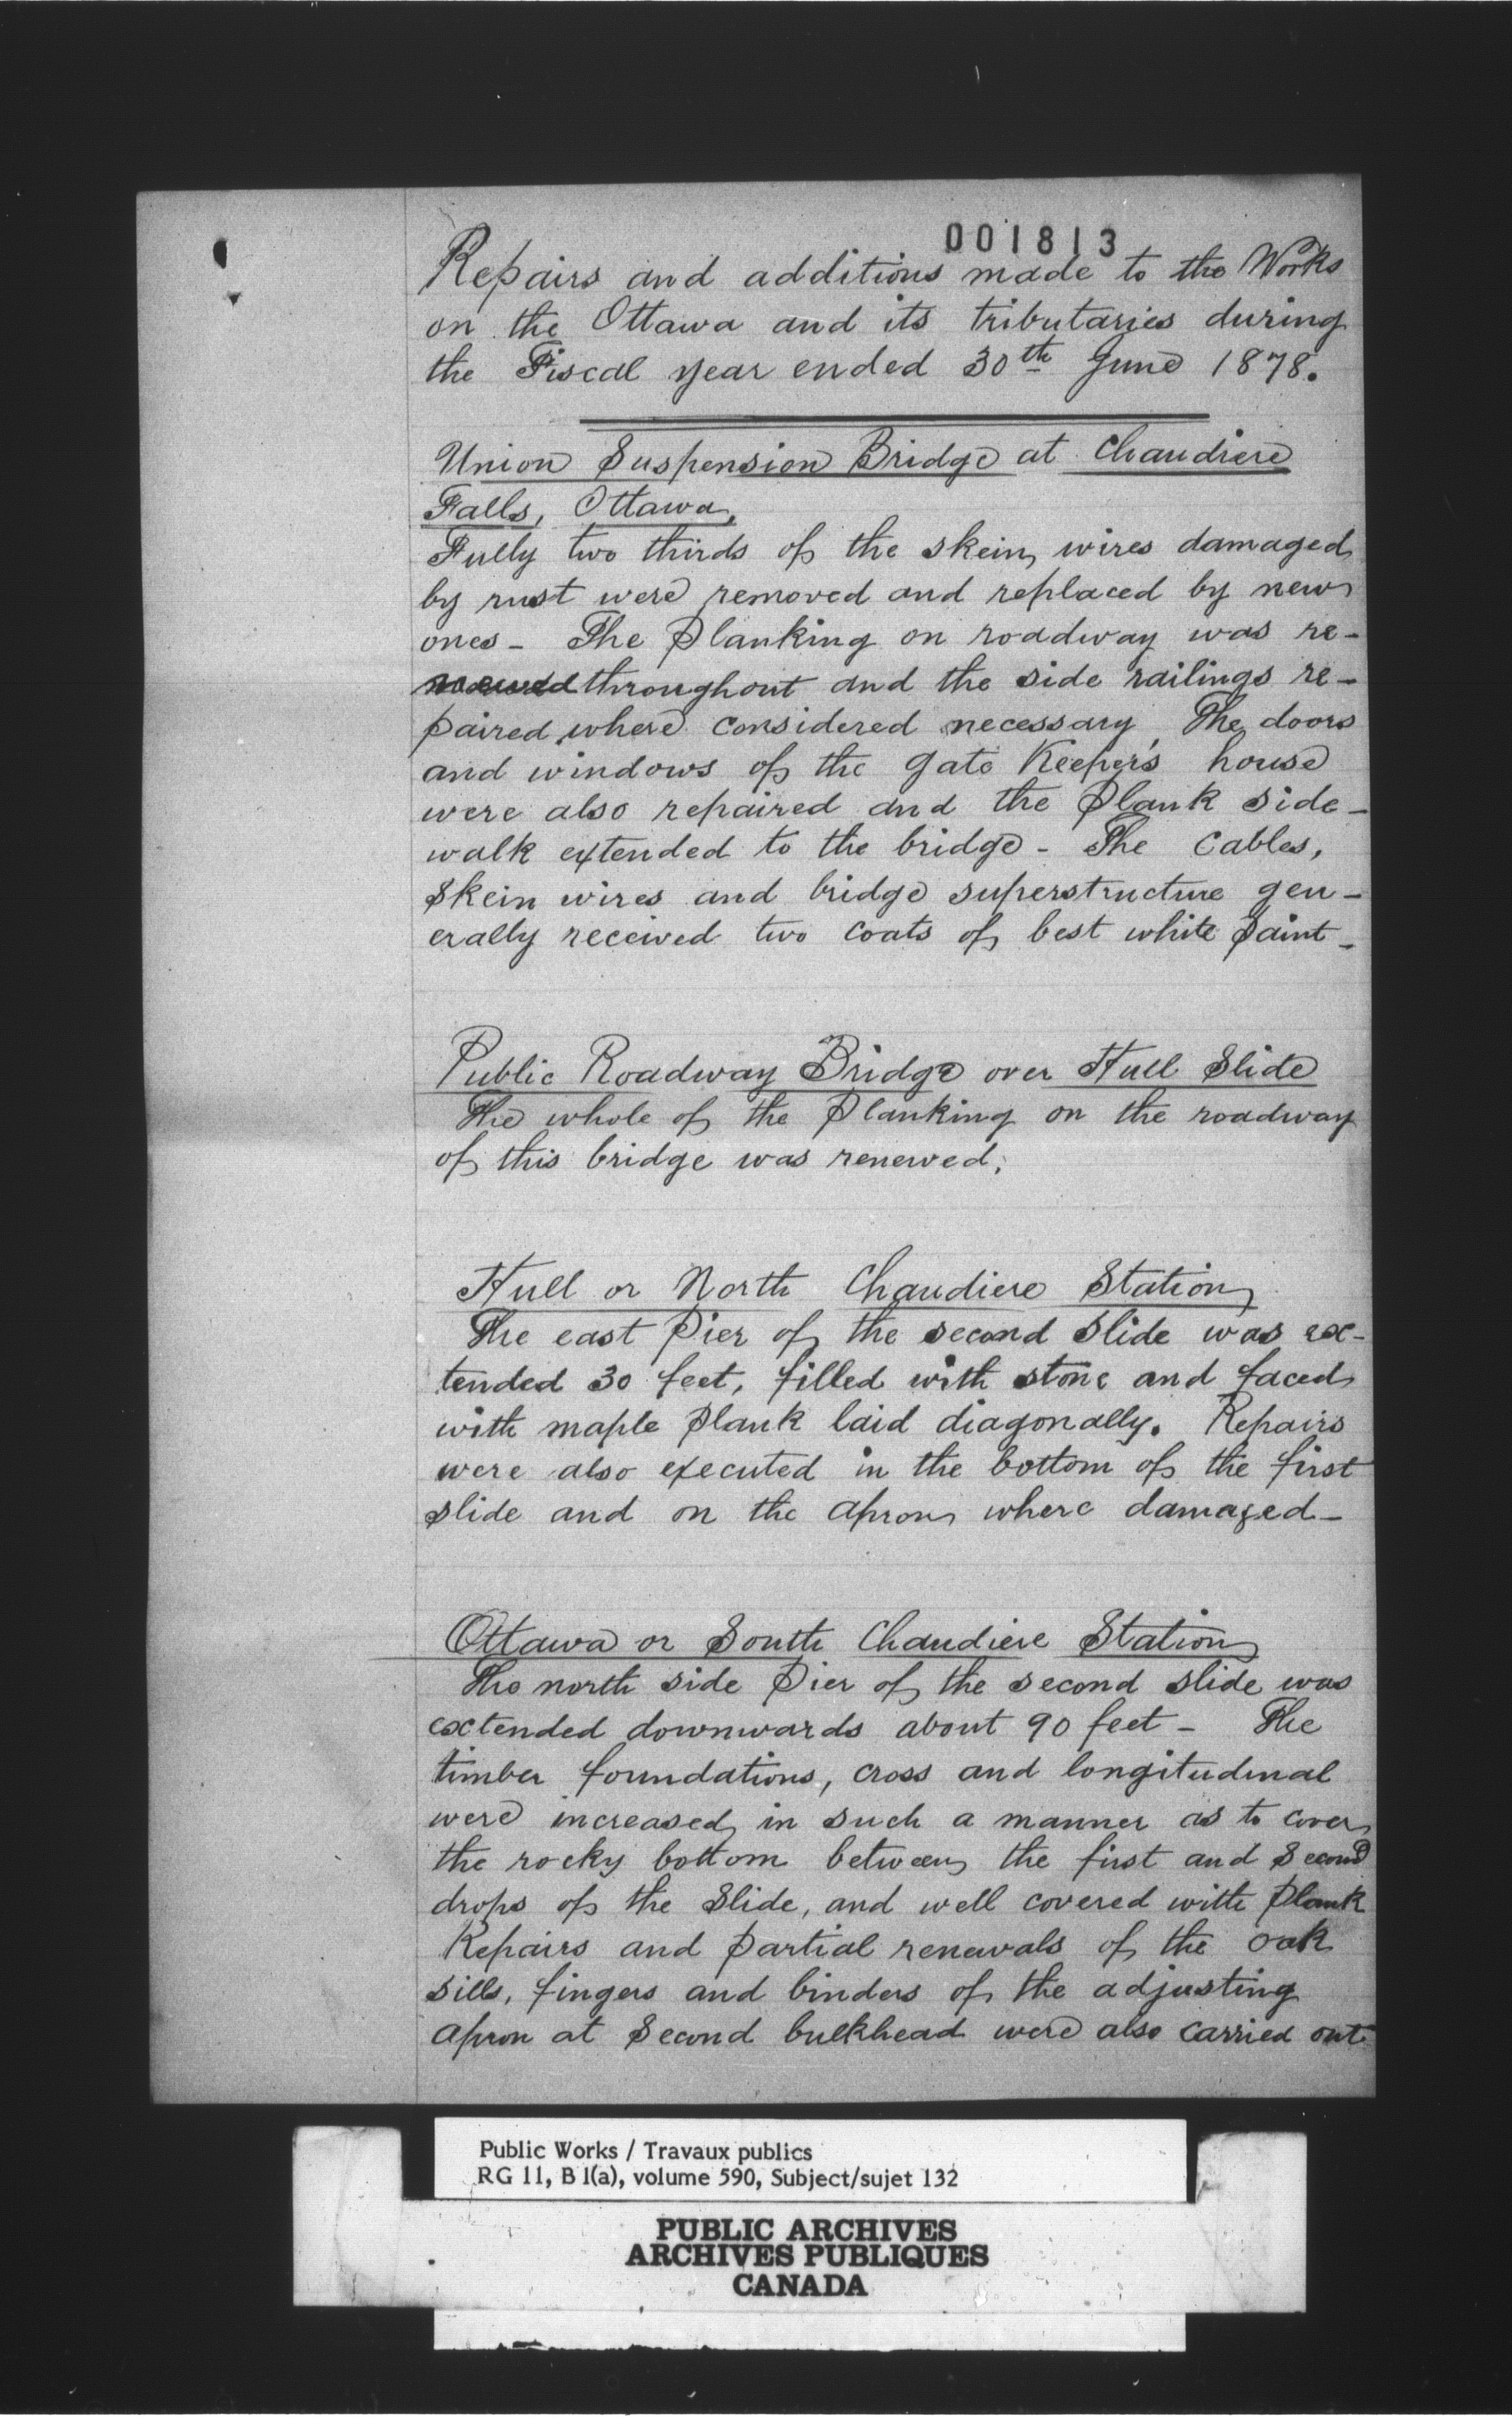 001813
Repairs and additions made to the Works
on the Ottawa and its tributaries during
the Fiscal year ended 30th June 1878.
Union Suspension Bridge at Chaudiere
Falls, Ottawa,
Fully two thirds of the skein wires damaged
by rust were removed and replaced by new
ones - The planking on roadway was re-
newed throughout and the side railings re-
paired where considered necessary. The doors
and windows of the gate Keeper's house
were also repaired and the plank side-
walk extended to the bridge - The Cables,
Skein wires and bridge superstructure gen-
erally received two coats of best white paint -
Public Roadway Bridge over Hull Slide
The whole of the planking on the roadway
of this bridge was renewed.
Hull or North Chaudiere Station
The east Pier of the second Slide was ex-
tended 30 feet, filled with stone and faced
with maple plank laid diagonally. Repairs
were also executed in the bottom of the first
slide and on the apron where damaged -
Ottawa or South Chaudiere Station
The north side Pier of the second slide was
extended downwards about 90 feet - The
timber foundations, cross and longitudinal
were increased in such a manner as to cover
the rocky bottom between the first and second
drops of the Slide, and well covered with plank
Repairs and partial renewals of the oak
sills, fingers and binders of the adjusting
apron at second bulkhead were also carried out
Public Works / Travaux publics
RG 11, B 1(a), volume 590, Subject/sujet 132
PUBLIC ARCHIVES
ARCHIVES PUBLIQUES
CANADA